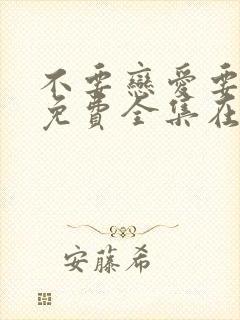 不要戀愛要
免費全集在
安藤希